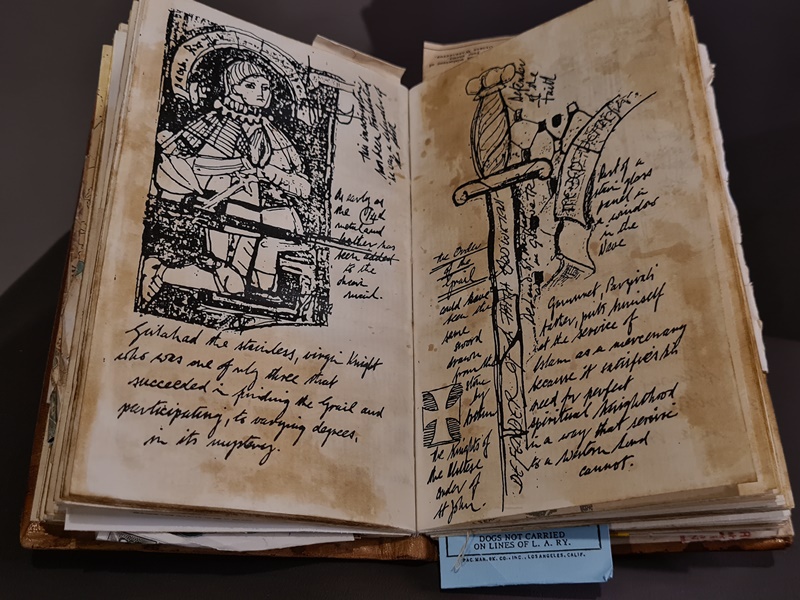 As early as
the
metal and
leather has
been added
to the
chain
mail.
Galahad the stainless, virgin Knight
who was one of only three that
succeeded in finding the Grail and
participating, to varying degrees,
in its mystery.
Defender
of the
Faith
Part of a
stain glass
panel in
a window
in the
Nave
The Order
of the
Grail
could have
been the
same
sword
drawn
from the
stone
by
Arthur
The Knights of
the
order of
St John.
DEFENDER OF
Gamuret, Parzival's
father, puts himself
at the service of
Islam as a mercenary
because it satisfies his
need for perfect
spiritual knighthood
in a way that service
to a Western land
cannot.
DOGS NOT CARRIED
ON LINES OF L. A. RY.
PAC. MAN. RK. CO., INC., LOS ANGELES, CALIF.